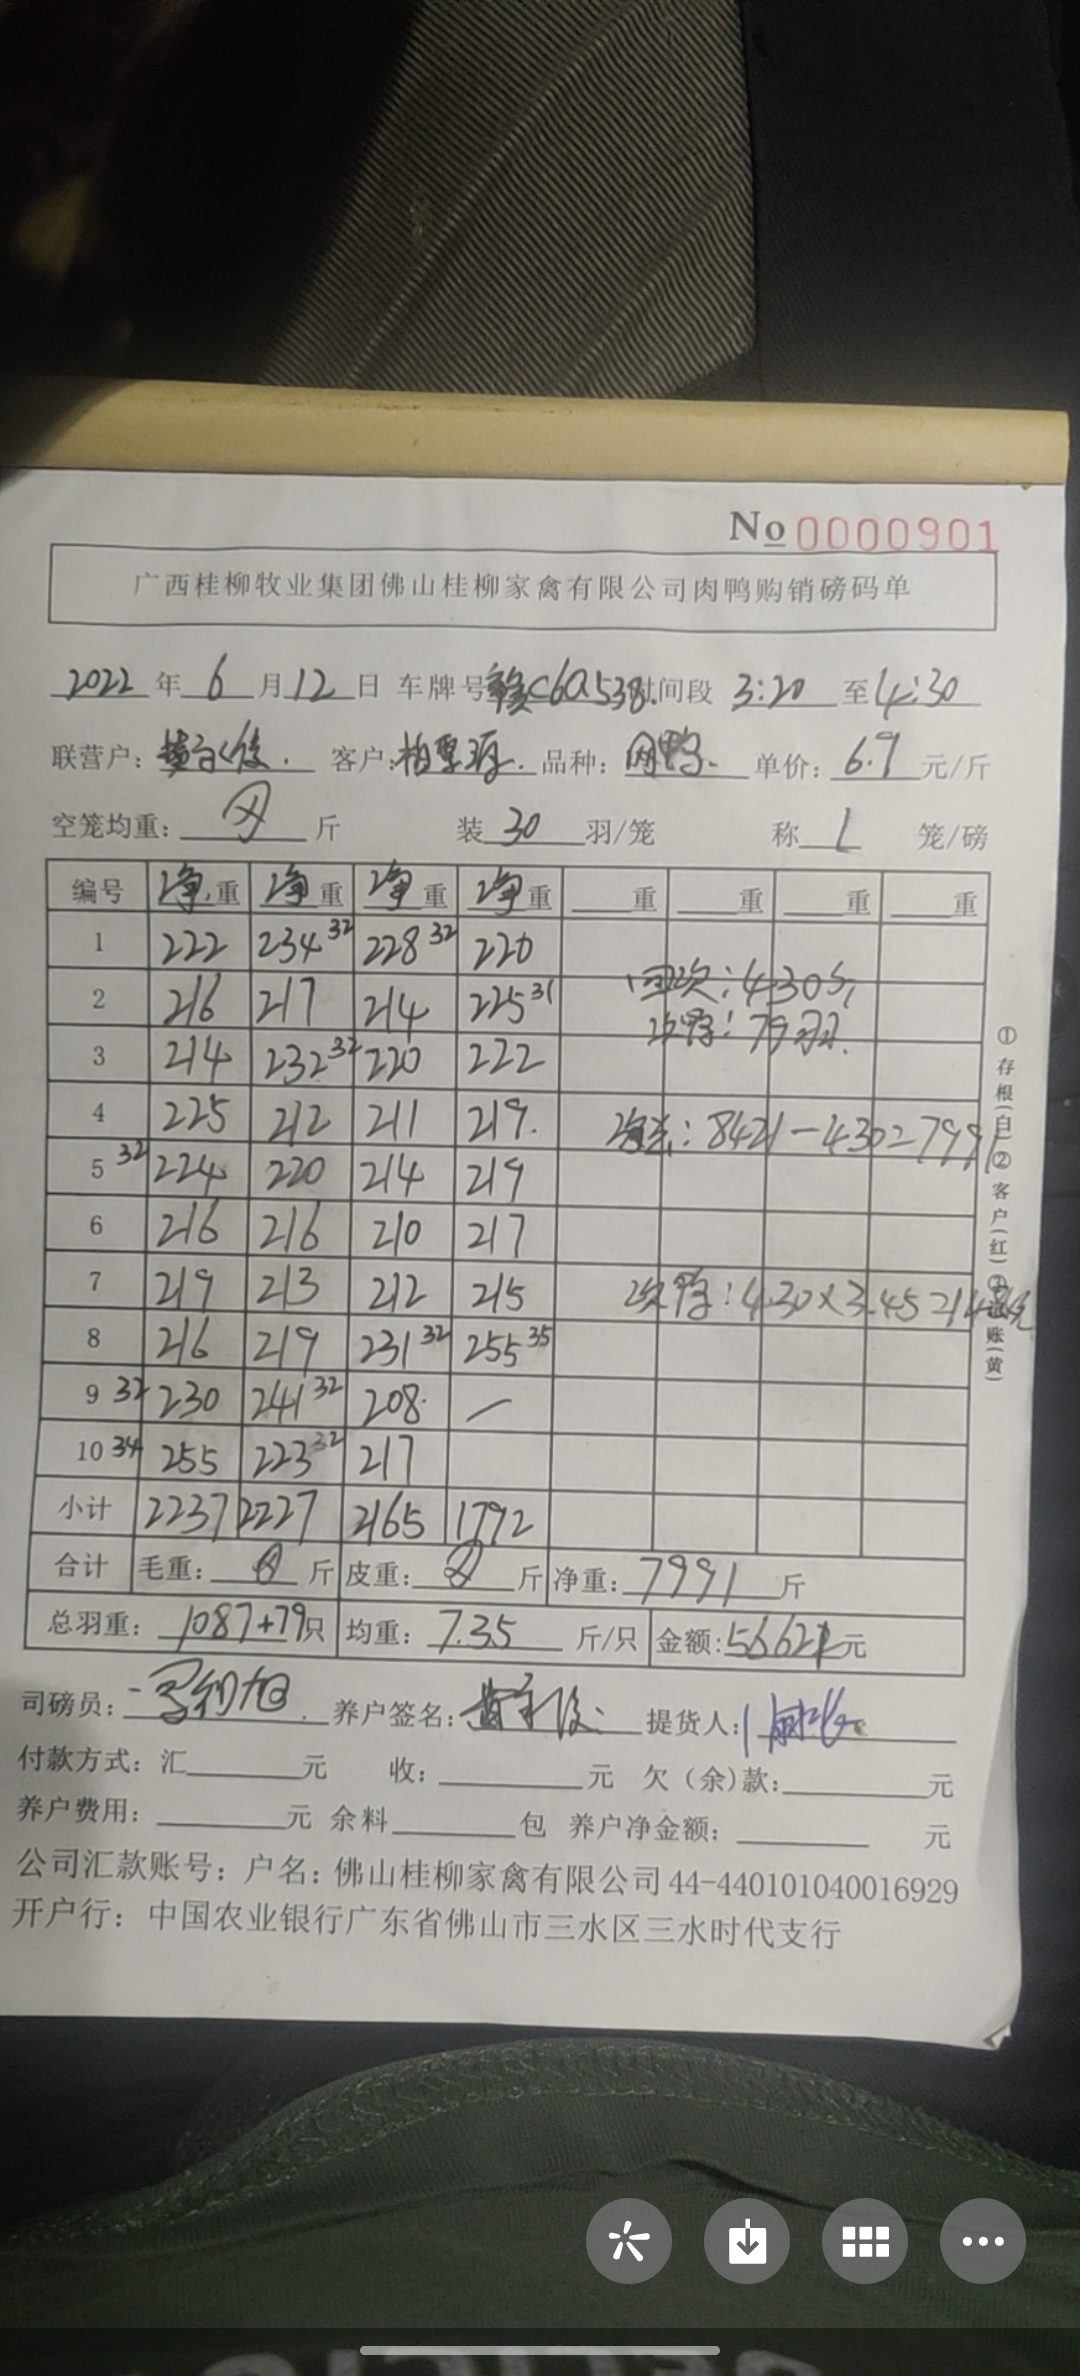 No 0000901
广西桂柳牧业集团佛山桂柳家禽有限公司肉鸭购销磅码单
2022 年 6 月 12 日 车牌号 赣C6Q538. 时间段 3:20 至 4:30
联营户: 客户: 品种: 肉鸭. 单价: 6.9 元/斤
空笼均重: 斤 装 30 羽/笼 称 1 笼/磅
编号 净重 净重 净重 净重 重 重 重 重
1 222 234 32 228 32 220
2 216 217 214 225 31 回次: 430斤
次鸭: 79羽.
3 214 232 32 220 222
4 225 212 211 219. 净总: 8421-430=7991
5 32 224 220 214 219
6 216 216 210 217
7 219 213 212 215 次鸭: 430×3.45=1484元
8 216 219 231 32 255 35
9 32 230 241 32 208. —
10 34 255 223 32 217
小计 2237 2227 2165 1792
合计 毛重: 斤 皮重: 斤 净重: 7991 斤
总羽重: 1087+79只 均重: 7.35 斤/只 金额: 56621元
司磅员: 养户签名: 提货人:
付款方式: 汇 元 收: 元 欠(余)款: 元
养户费用: 元 余料 包 养户净金额: 元
公司汇款账号: 户名: 佛山桂柳家禽有限公司 44-440101040016929
开户行: 中国农业银行广东省佛山市三水区三水时代支行
①存根(白)②客户(红)③账(黄)